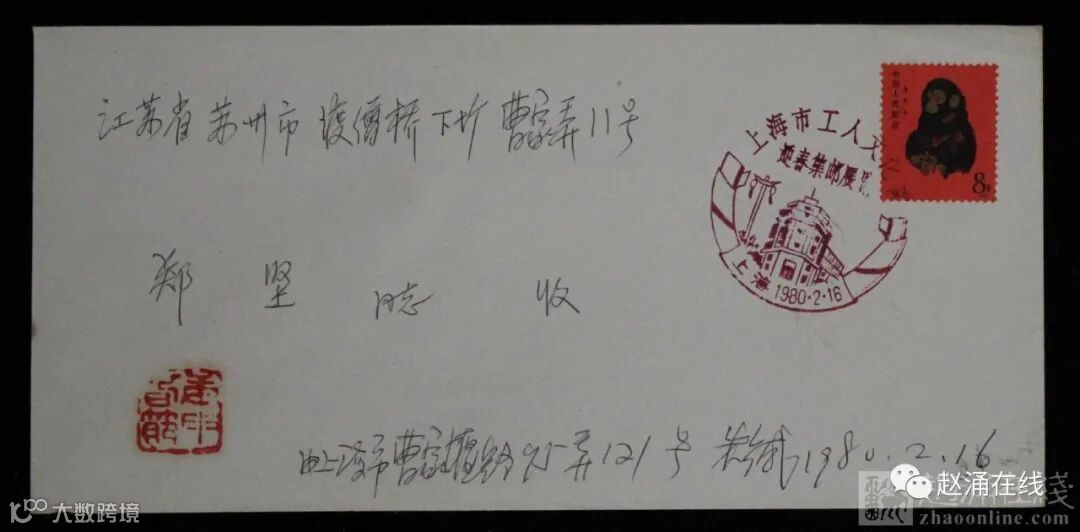 江苏省苏州市渡僧桥下圹曹家弄11号
中国人民邮政
8分
上海市工人文化
迎春集邮展览
上海 1980·2·16
郑 坚 同志 收
上海市曹家 弄121号 1980.2.16
赵涌在线
zhaoonline.com
大数跨境